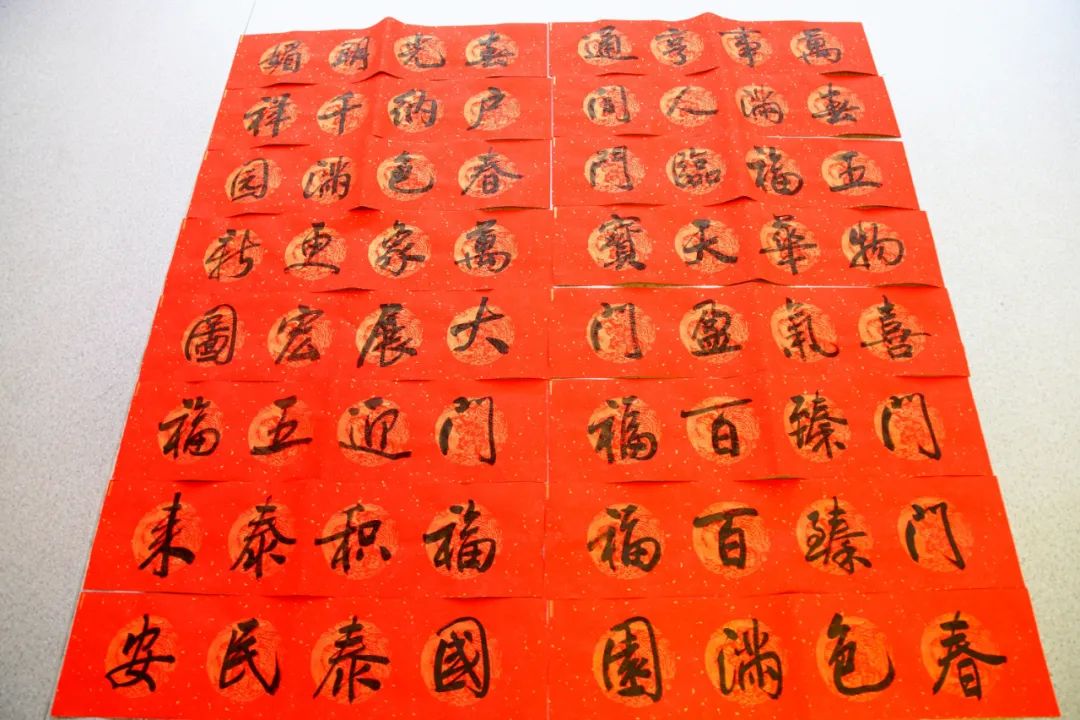 萬事亨通
春光明媚
春满人间
户纳千祥
五福臨門
春色满园
物華天寶
萬象更新
喜氣盈门
大展宏圖
门臻百福
门迎五福
门臻百福
福积泰来
春色满園
國泰民安